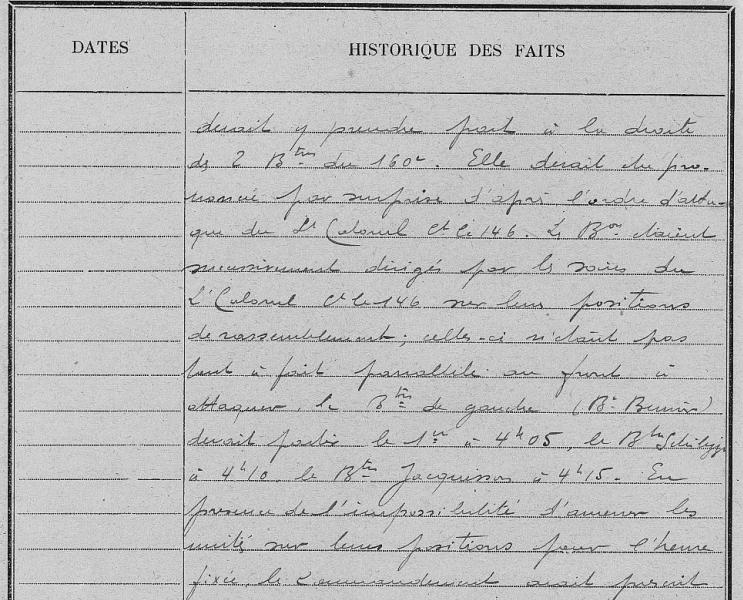 DATES
HISTORIQUE DES FAITS
devait y prendre part à la droite
des 2 Btns du 160e. Elle devait être pro-
noncée par surprise d'après l'ordre d'atta-
que du Lt Colonel Ct le 146. Les Bons étaient
successivement dirigés par les soins du
Lt Colonel Ct le 146 sur leurs positions
de rassemblement; celles-ci n'étant pas
tout à fait parallèle au front à
attaquer, le Btn de gauche (Bn
devait partir le 1er à 4h05, le Btn
à 4h10, le Btn Jacquisson à 4h15. En
présence de l'impossibilité d'amener les
unités sur leurs positions pour l'heure
fixée, le Commandement avait prescrit